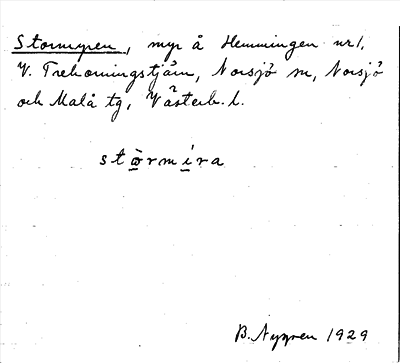 Stormyren, myr å Hemmingen nr 1,
V. Trehörningstjärn, Norsjö sn, Norsjö
och Malå tg, Västerb. l.
stòrmíra
B. Nygren 1929